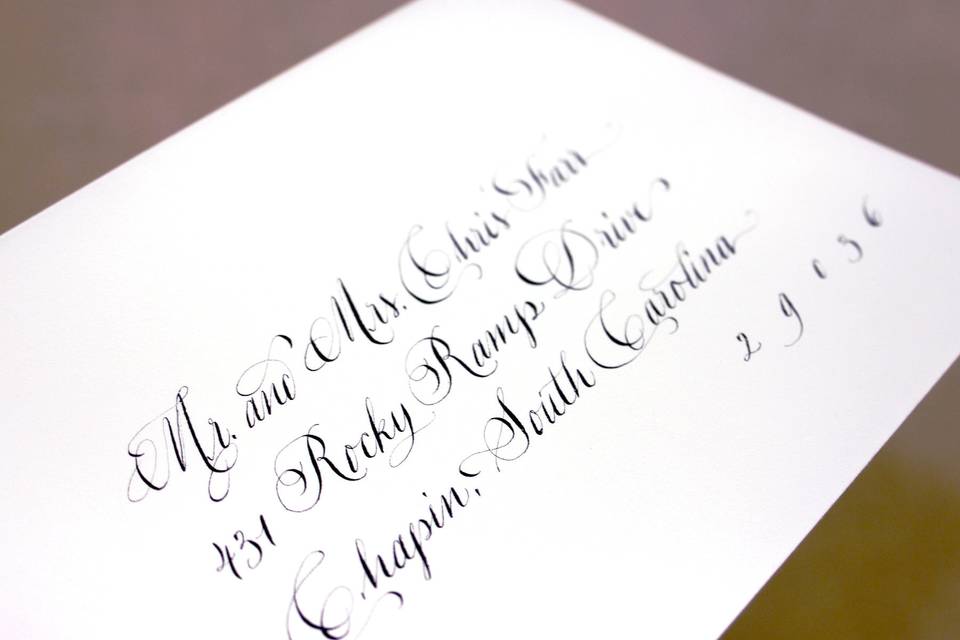 Mr. and Mrs. Chris Farr
431 Rocky Ramp Drive
Chapin, South Carolina
29036